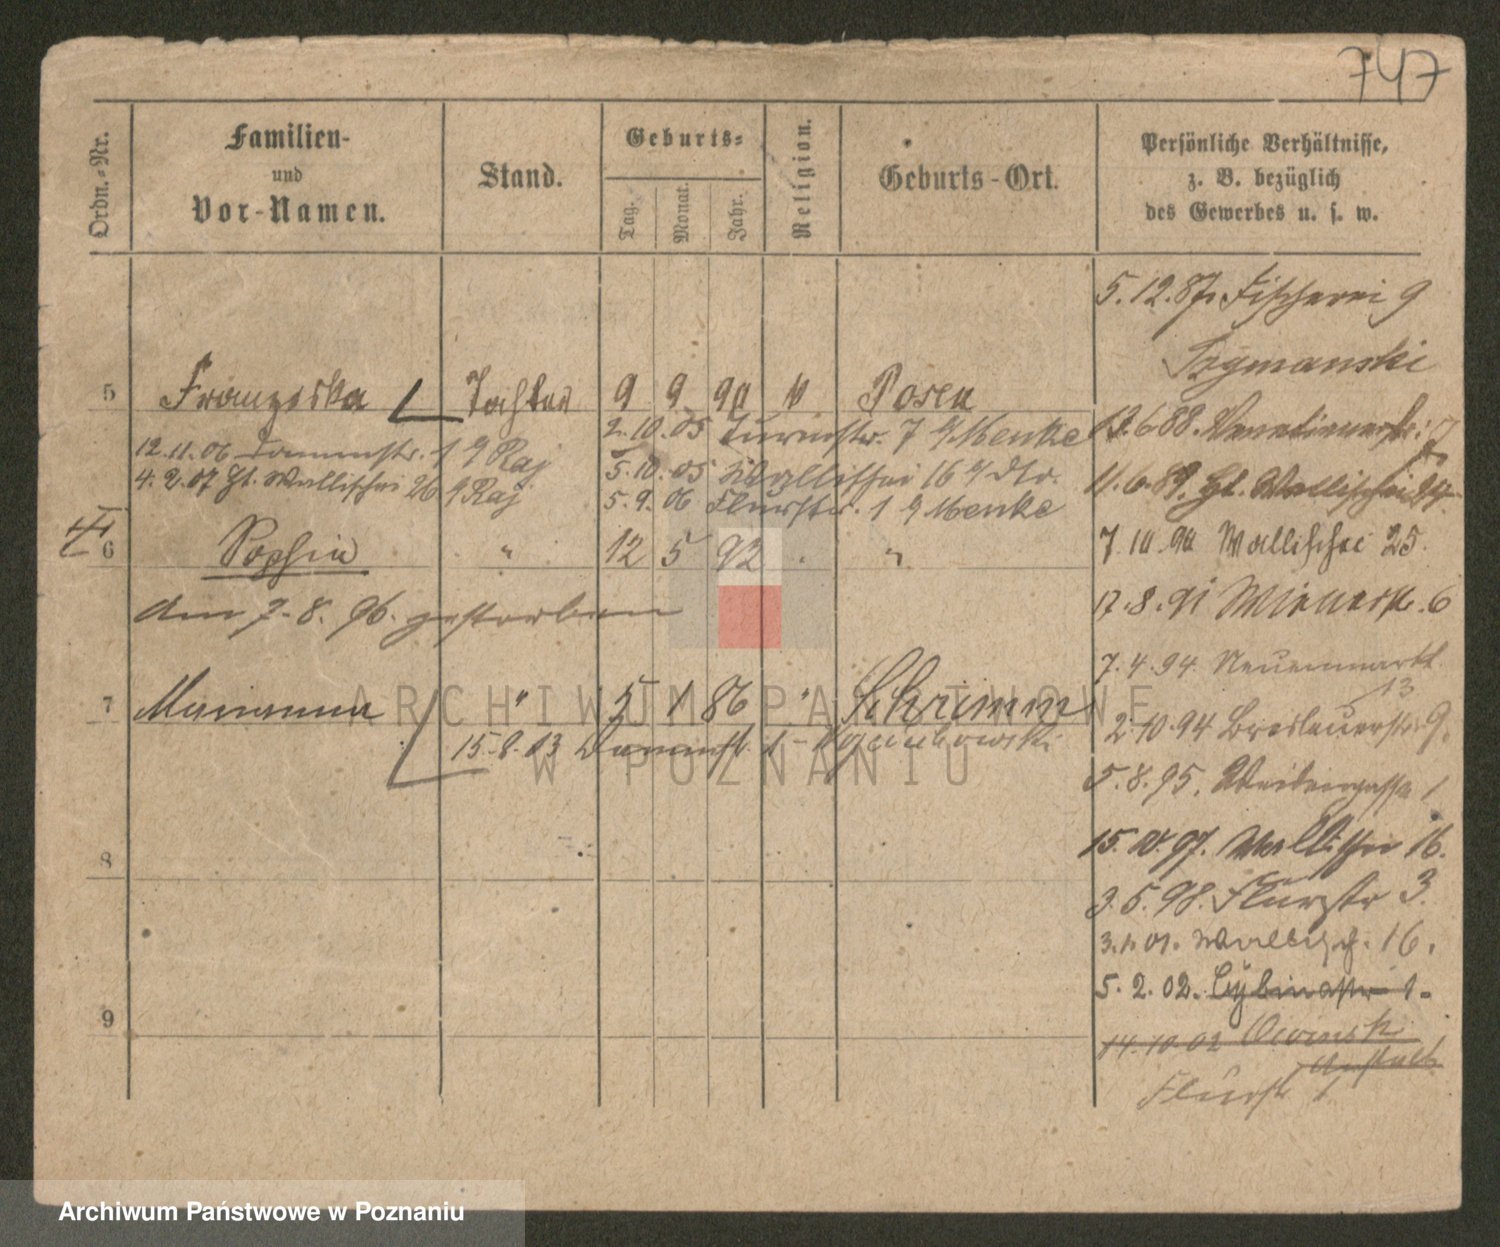 747
Ordn.-Nr.
Familien-
und
Vor-Namen.
Stand.
Geburts-
Tag.
Monat.
Jahr.
Religion.
Geburts-Ort.
Persönliche Verhältnisse,
z. B. bezüglich
des Gewerbes u. s. w.
5.12.87. Fischerei 9
Szymanski
5 Franziska Tochter 9 9 90 Posen
2.10.05 Turmstr. 7 Menke
13.6.88. Venetianerstr.
12.11.06 Dammstr. 1 Raj
5.10.05 Wallischei 16
11.6.89. Gl. Wallischei
4.2.07 Gl. Wallischei 26 Raj
5.9.06 Flurstr. 1 Menke
6 Sophie " 12 5 92 "
7.10.90 Wallischei 25.
am 7.8.96. gestorben
17.8.91 Wienerstr. 6
7.4.94. Neuermarkt
13
7 Marianna " 5 1 86 " Schrimm
2.10.94 Breslauerstr. 9.
15.8.03 Dammstr. 1
5.8.95. Weidengasse 1
15.10.97. Wallischei 16.
8
3.5.98. Flurstr 3.
3.1.01. Wallisch. 16.
5.2.02. Cybinastr 1.
9
14.10.02
Anstalt
Flurstr 1
ARCHIWUM PAŃSTWOWE
W POZNANIU
Archiwum Państwowe w Poznaniu